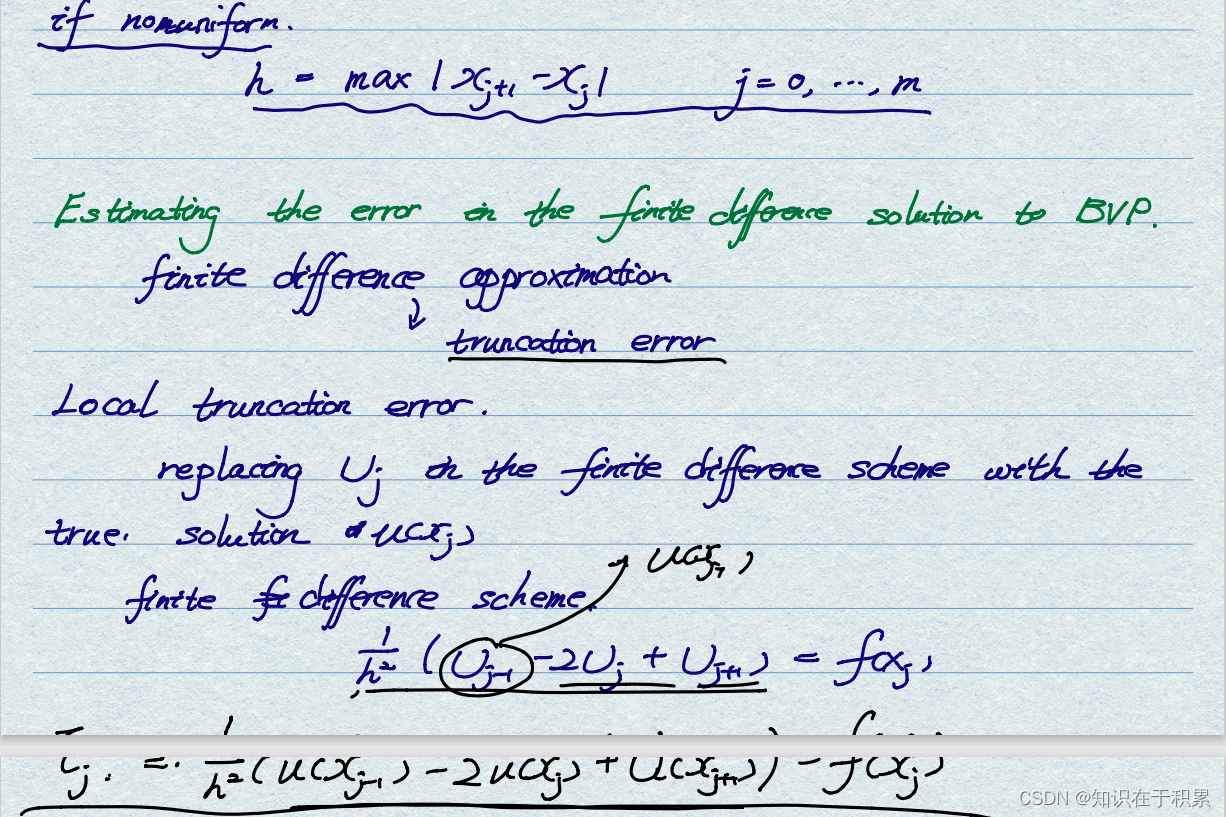 if nonuniform.
h = max | x_{j+1} - x_j |   j = 0, ..., m
Estimating the error in the finite difference solution to BVP.
finite difference approximation
↓
truncation error
Local truncation error.
replacing U_j in the finite difference scheme with the
true. solution u(x_j)
→ u(x_{j-1})
finite difference scheme.
1/h² (U_{j-1} - 2U_j + U_{j+1}) = f(x_j)
τ_j = 1/h² (u(x_{j-1}) - 2u(x_j) + u(x_{j+1})) - f(x_j)
CSDN @知识在于积累